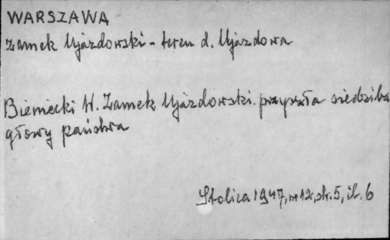 WARSZAWA
Zamek Ujazdowski - teren d. Ujazdowa
Bieniecki H. Zamek Ujazdowski. przyszła siedziba
głowy państwa
Stolica 1947, nr 12, str. 5, il. 6